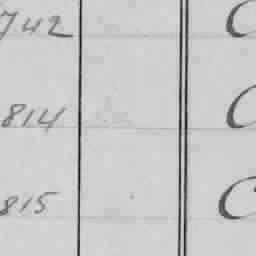 742 C
814 C
815 C